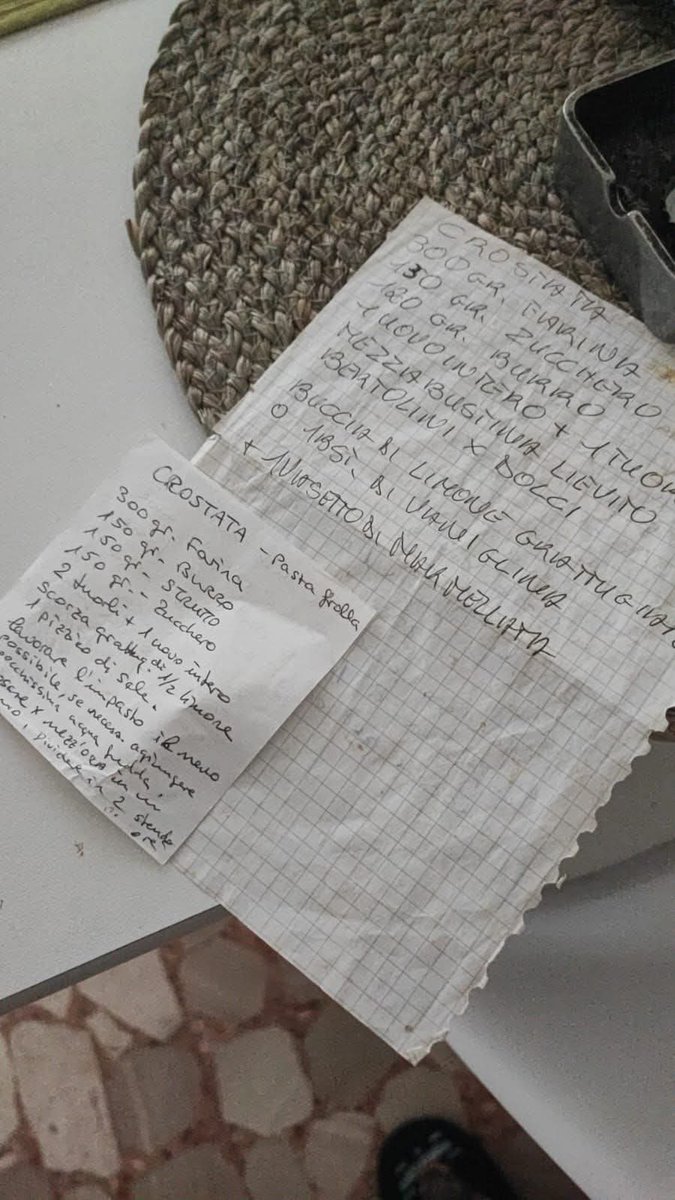 CROSTATA
300 GR. FARINA
130 GR. ZUCCHERO
120 GR. BURRO
1 UOVO INTERO + 1 TUOR
MEZZA BUSTINA LIEVITO
BERTOLINI X DOLCI
BUCCIA DI LIMONE GRATTUGIATA
O 1 BS. DI VANIGLINA
+ 1 VASETTO DI MARMELLATA
CROSTATA - Pasta frolla
300 gr. Farina
150 gr. BURRO
150 gr. STRUTTO
150 gr. Zucchero
2 tuorli + 1 uovo intero
scorza grattug. di 1/2 limone
1 pizzico di sale.
lavorare l'impasto il meno
possibile, se necess. aggiungere
pochissima acqua fredda,
X MEZZ'ORA in un
dividere in 2 stende